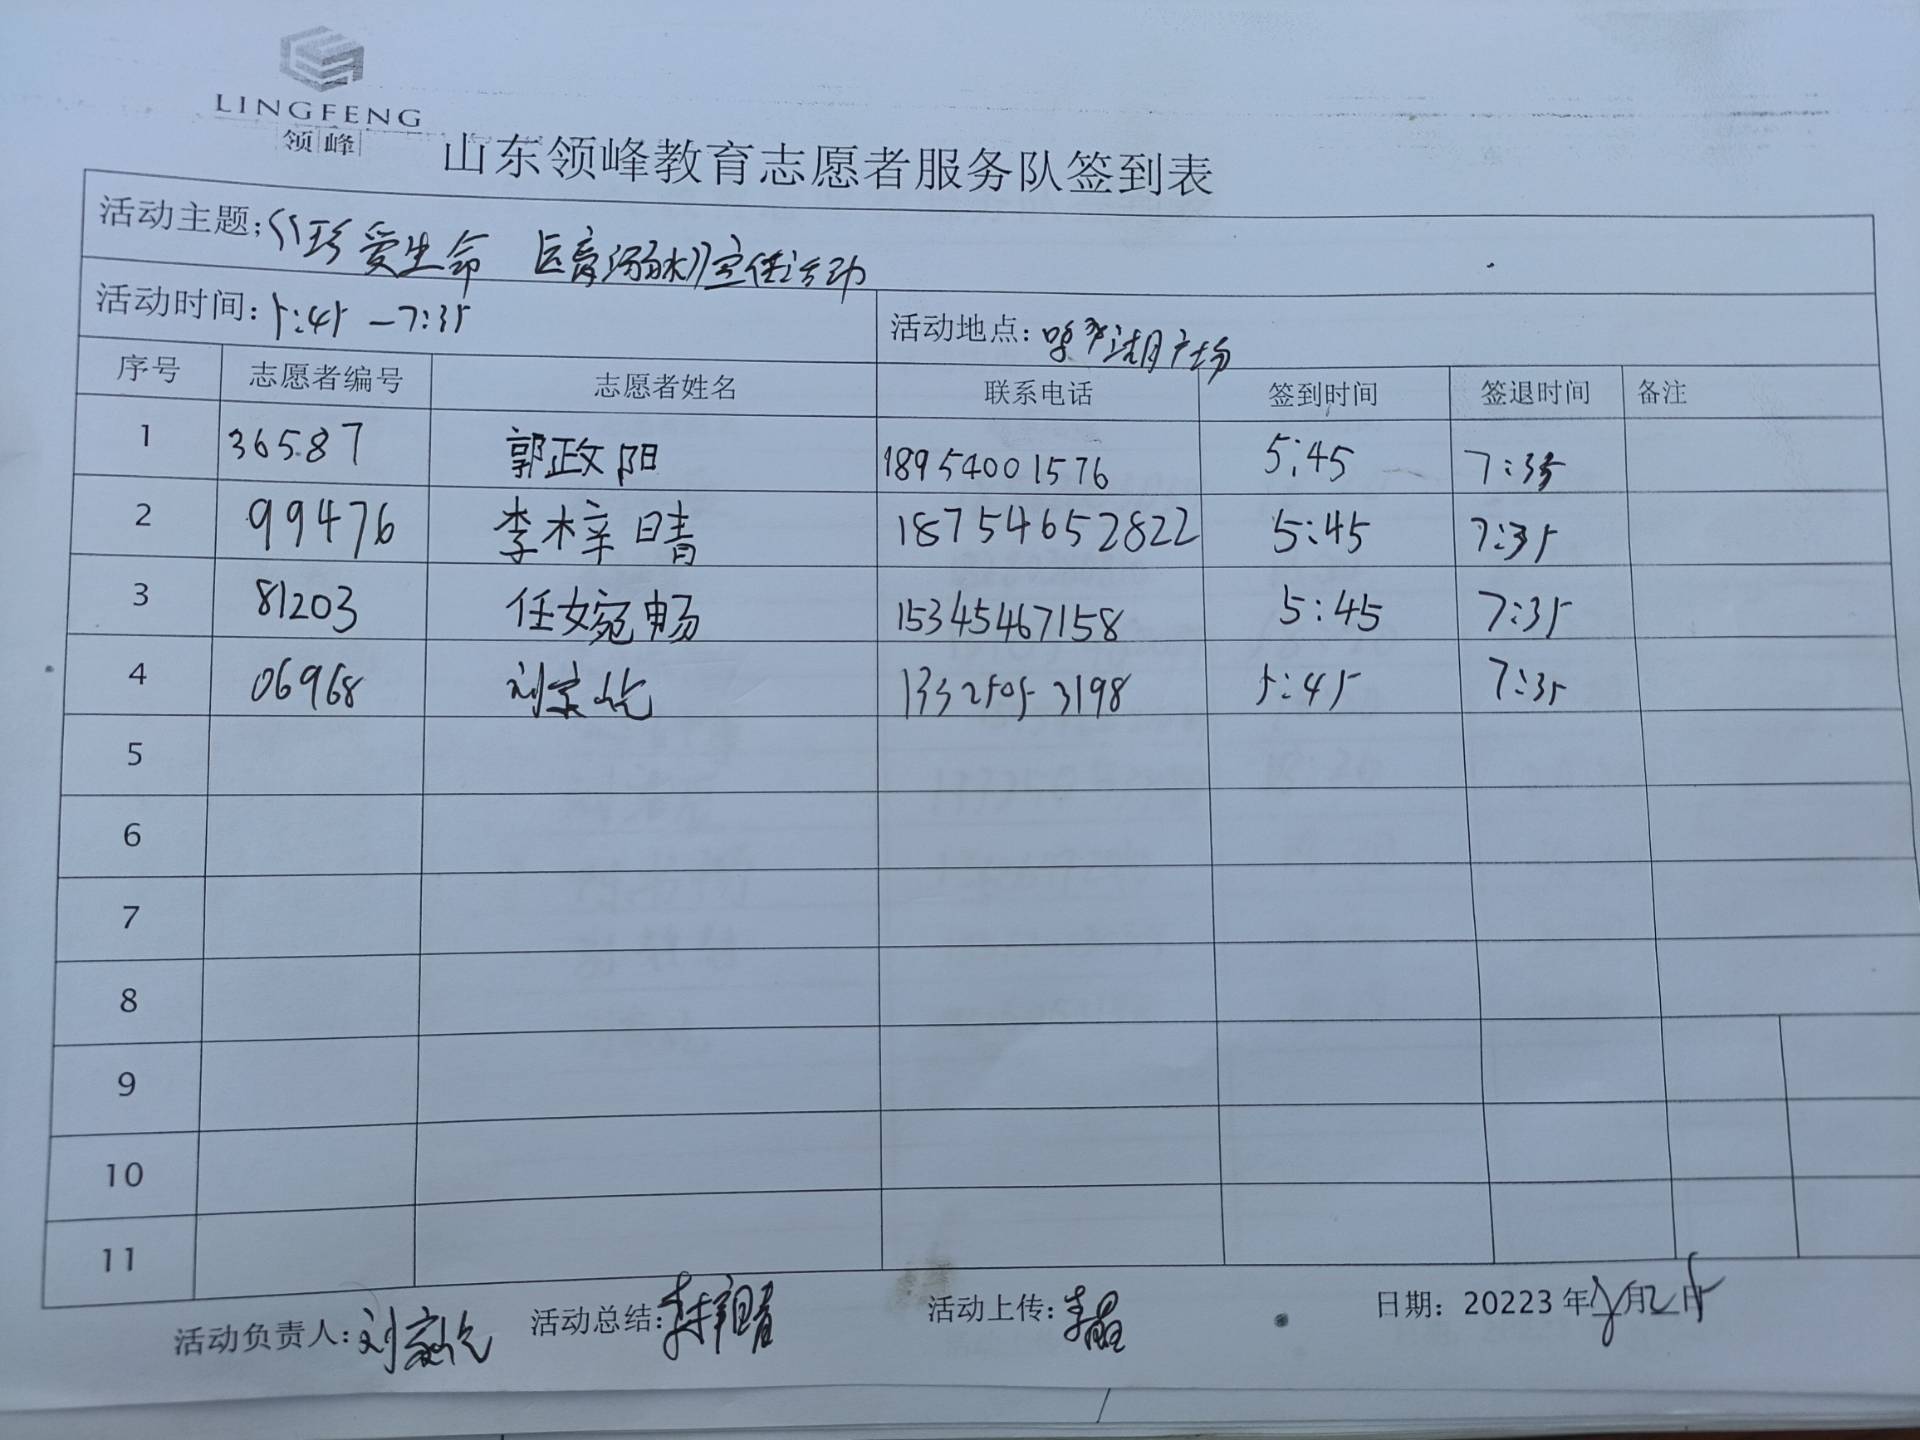 LINGFENG
领峰
山东领峰教育志愿者服务队签到表
活动主题;《珍爱生命 溺水》宣传活动
活动时间: 5:45 — 7:35 活动地点: 湖广场
序号 志愿者编号 志愿者姓名 联系电话 签到时间 签退时间 备注
1 36587 郭政阳 18954001576 5:45 7:35
2 99476 李梓晴 18754652822 5:45 7:35
3 81203 任婉畅 15345467158 5:45 7:35
4 06968 刘家 13325053198 5:45 7:35
5
6
7
8
9
10
11
活动负责人: 刘家 活动总结: 李梓晴 活动上传: 李晶 日期: 20223 年 月2 日